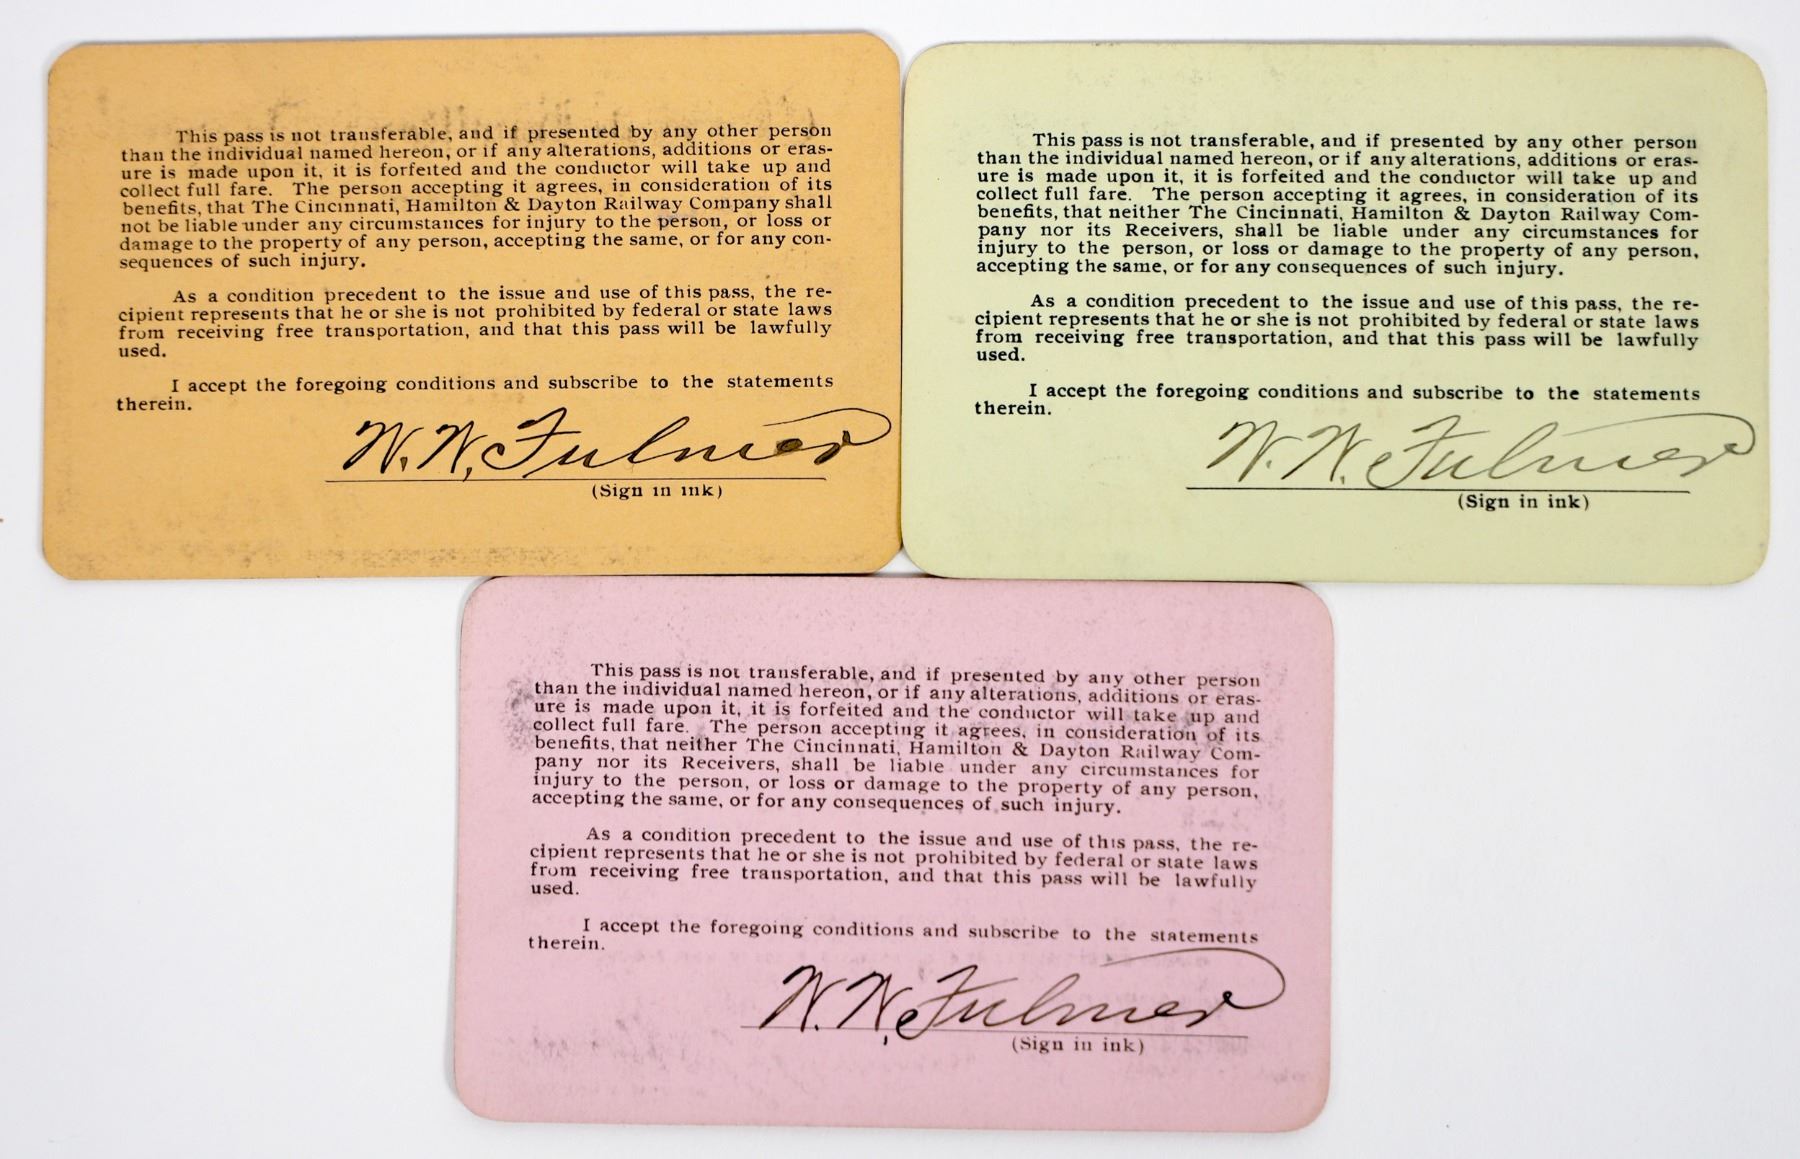 This pass is not transferable, and if presented by any other person
than the individual named hereon, or if any alterations, additions or eras-
ure is made upon it, it is forfeited and the conductor will take up and
collect full fare. The person accepting it agrees, in consideration of its
benefits, that The Cincinnati, Hamilton & Dayton Railway Company shall
not be liable under any circumstances for injury to the person, or loss or
damage to the property of any person, accepting the same, or for any con-
sequences of such injury.
As a condition precedent to the issue and use of this pass, the re-
cipient represents that he or she is not prohibited by federal or state laws
from receiving free transportation, and that this pass will be lawfully
used.
I accept the foregoing conditions and subscribe to the statements
therein.
W. W. Fulmer
(Sign in ink)
This pass is not transferable, and if presented by any other person
than the individual named hereon, or if any alterations, additions or eras-
ure is made upon it, it is forfeited and the conductor will take up and
collect full fare. The person accepting it agrees, in consideration of its
benefits, that neither The Cincinnati, Hamilton & Dayton Railway Com-
pany nor its Receivers, shall be liable under any circumstances for
injury to the person, or loss or damage to the property of any person,
accepting the same, or for any consequences of such injury.
As a condition precedent to the issue and use of this pass, the re-
cipient represents that he or she is not prohibited by federal or state laws
from receiving free transportation, and that this pass will be lawfully
used.
I accept the foregoing conditions and subscribe to the statements
therein.
W. W. Fulmer
(Sign in ink)
This pass is not transferable, and if presented by any other person
than the individual named hereon, or if any alterations, additions or eras-
ure is made upon it, it is forfeited and the conductor will take up and
collect full fare. The person accepting it agrees, in consideration of its
benefits, that neither The Cincinnati, Hamilton & Dayton Railway Com-
pany nor its Receivers, shall be liable under any circumstances for
injury to the person, or loss or damage to the property of any person,
accepting the same, or for any consequences of such injury.
As a condition precedent to the issue and use of this pass, the re-
cipient represents that he or she is not prohibited by federal or state laws
from receiving free transportation, and that this pass will be lawfully
used.
I accept the foregoing conditions and subscribe to the statements
therein.
W. W. Fulmer
(Sign in ink)